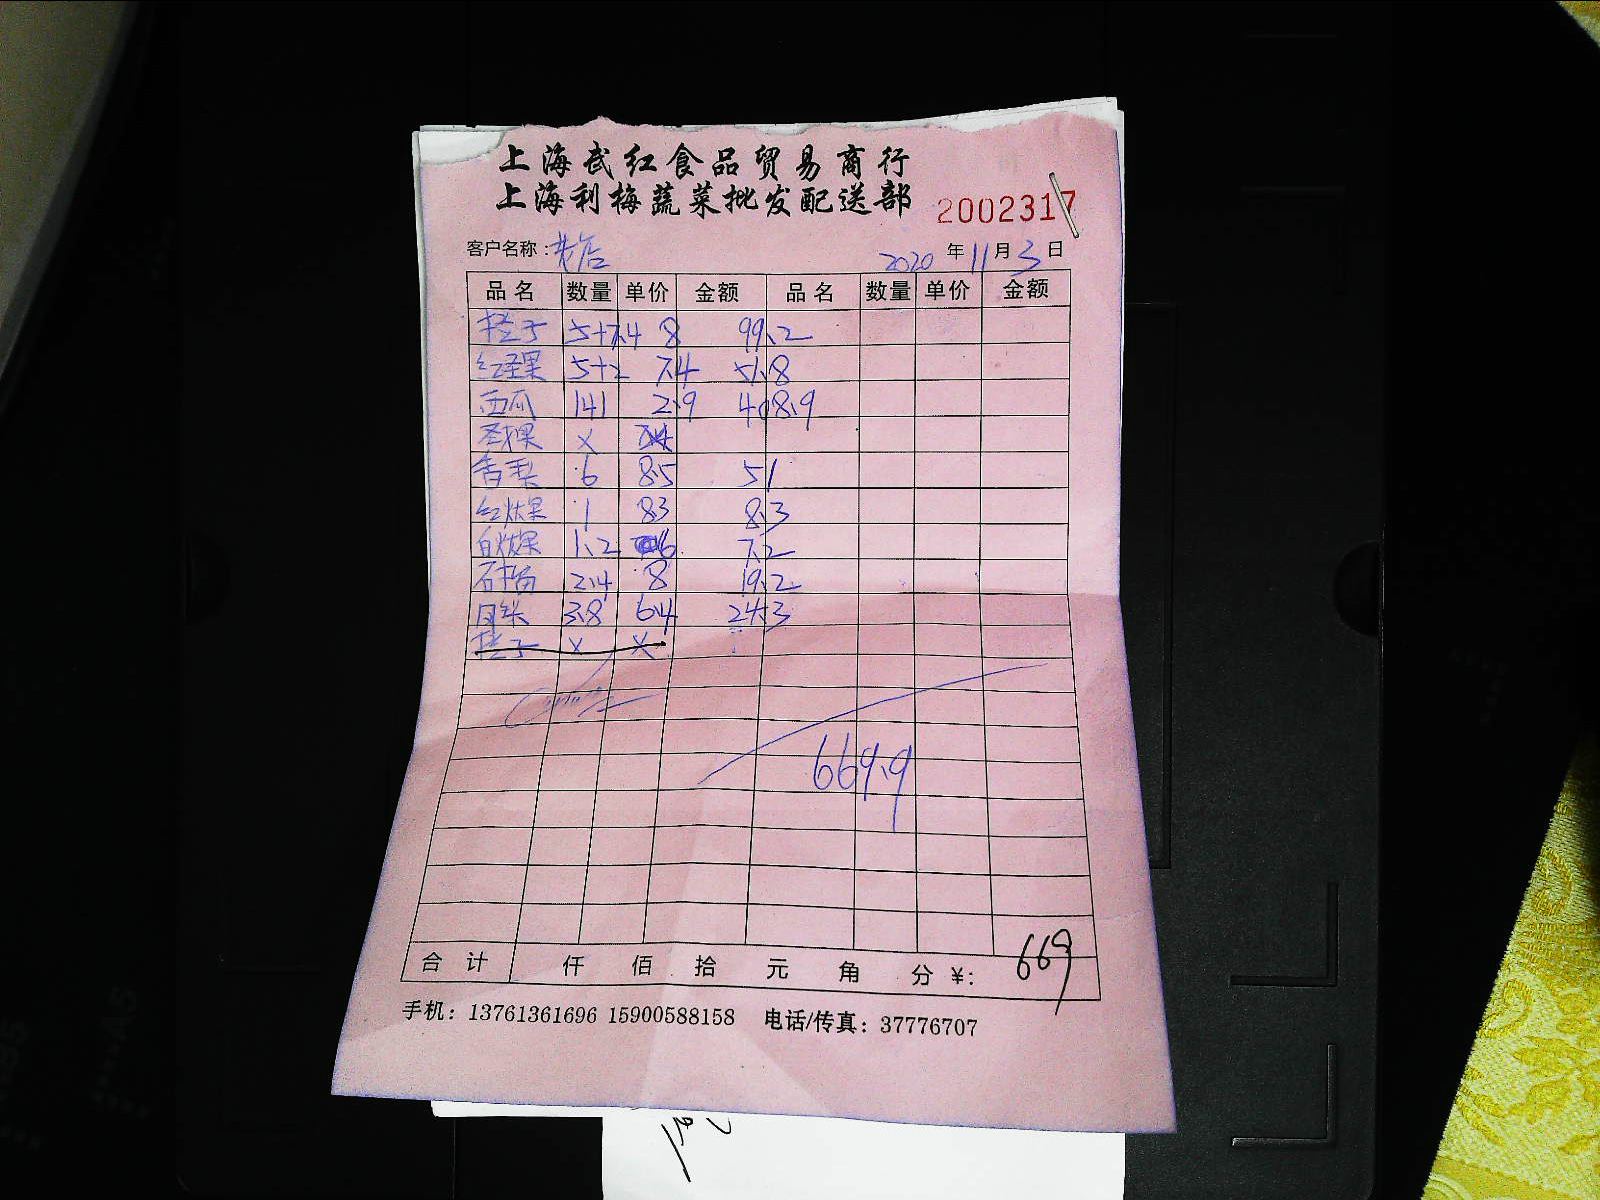 上海武红食品贸易商行
上海利梅蔬菜批发配送部
2002317
客户名称: 2020年11月3日
品名 数量 单价 金额 品名 数量 单价 金额
橙子 5+7.4 8 99.2
红圣果 5+2 7.4 51.8
西瓜 141 2.9 408.9
圣果 x
香梨 6 8.5 51
红火龙果 1 8.3 8.3
白火龙果 1.2 6 7.2
石榴 2.4 8 19.2
3.8 6.4 24.3
橙子 x x
669.9
合计 仟 佰 拾 元 角 分 ¥: 669
手机: 13761361696 15900588158 电话/传真: 37776707